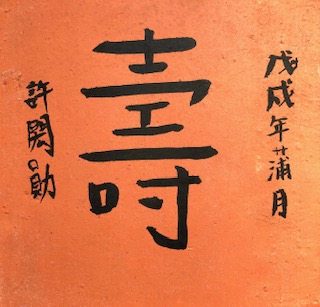 戊戌年蒲月
壽
許勛